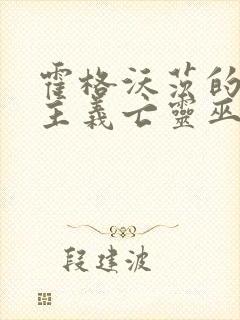 霍格沃茨的
主義亡靈巫
段建波